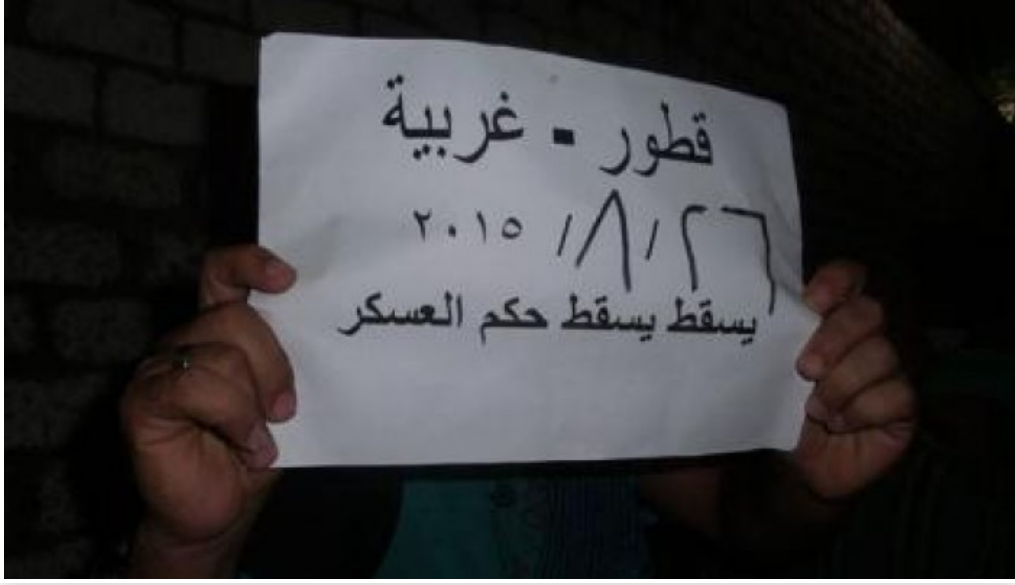 قطور - غربية
٢٦/٨/٢٠١٥
يسقط يسقط حكم العسكر